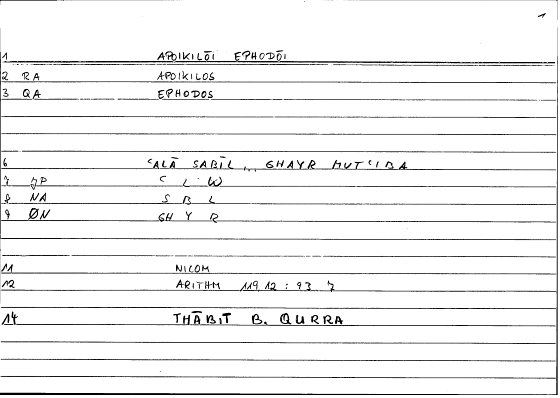 1
1 APOIKILŌI EPHODŌI
2 RA APOIKILOS
3 QA EPHODOS
6 ʿALĀ SABĪL... GHAYR MUTʿIBA
7 JP ʿ L W
8 NA S B L
9 ØN GH Y R
11 NICOM
12 ARITHM 119,12 : 93 7
14 THĀBIT B. QURRA